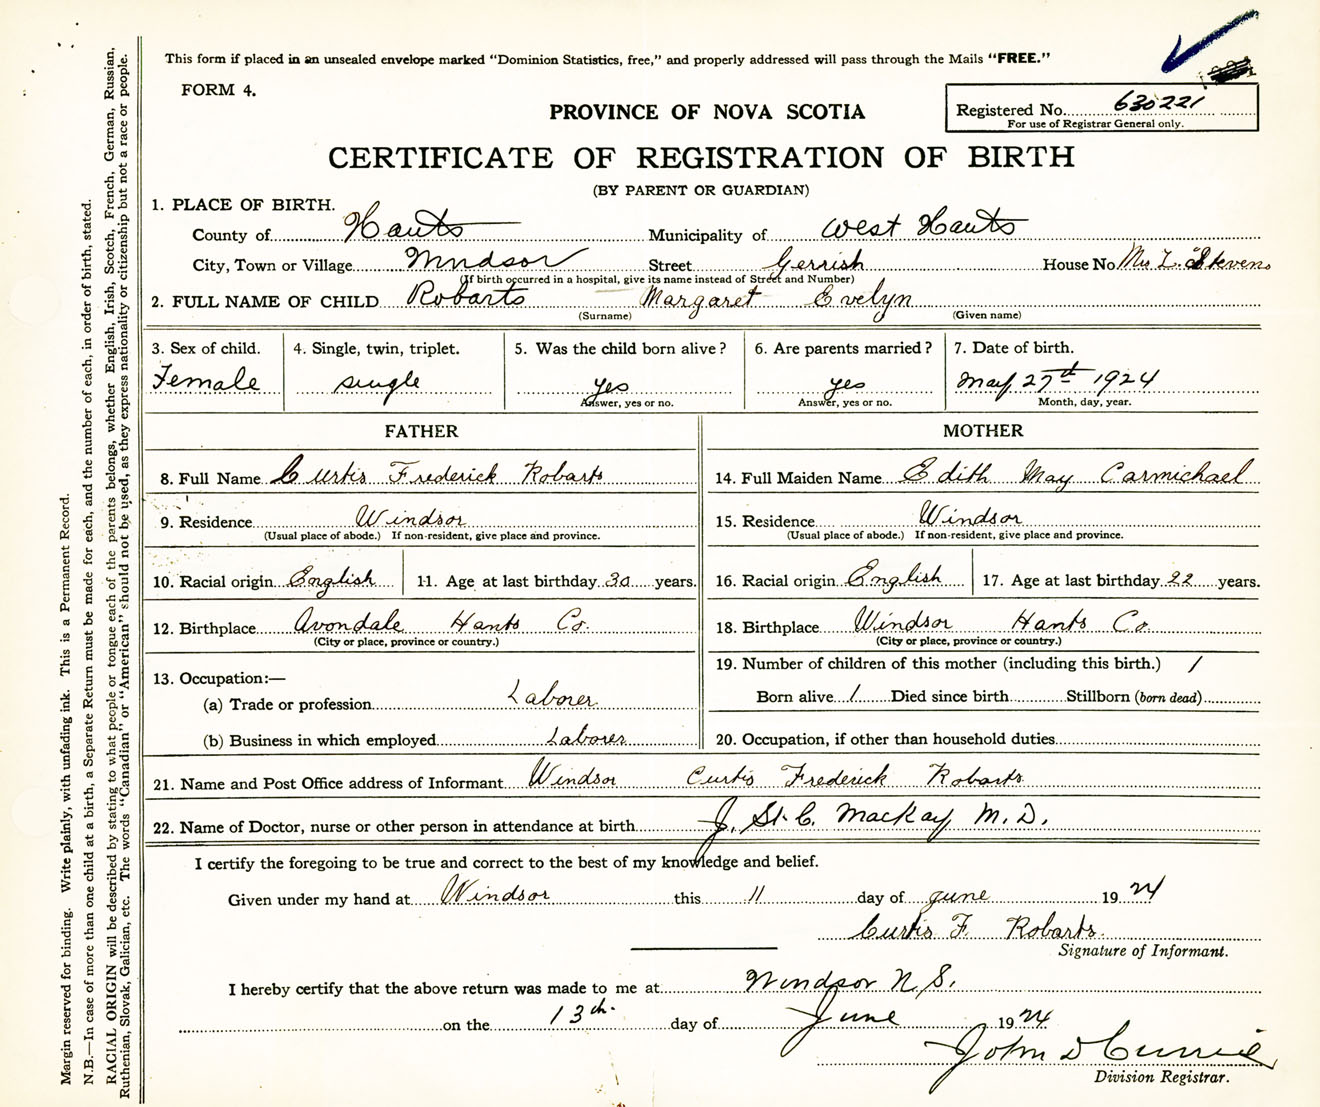 This form if placed in an unsealed envelope marked "Dominion Statistics, free," and properly addressed will pass through the Mails "FREE."
FORM 4.
PROVINCE OF NOVA SCOTIA
Registered No. 630221
For use of Registrar General only.
CERTIFICATE OF REGISTRATION OF BIRTH
(BY PARENT OR GUARDIAN)
1. PLACE OF BIRTH.
County of Hants Municipality of West Hants
City, Town or Village Windsor Street Gerrish House No Mrs L. Stevens
(If birth occurred in a hospital, give its name instead of Street and Number)
2. FULL NAME OF CHILD Robarts Margaret Evelyn
(Surname) (Given name)
3. Sex of child. 4. Single, twin, triplet. 5. Was the child born alive? 6. Are parents married? 7. Date of birth.
Female single yes yes May 27th 1924
Answer, yes or no. Answer, yes or no. Month, day, year.
FATHER MOTHER
8. Full Name Curtis Frederick Robarts 14. Full Maiden Name Edith May Carmichael
9. Residence Windsor 15. Residence Windsor
(Usual place of abode.) If non-resident, give place and province. (Usual place of abode.) If non-resident, give place and province.
10. Racial origin English 11. Age at last birthday 30 years. 16. Racial origin English 17. Age at last birthday 22 years.
12. Birthplace Avondale Hants Co. 18. Birthplace Windsor Hants Co.
(City or place, province or country.) (City or place, province or country.)
13. Occupation:— 19. Number of children of this mother (including this birth.) 1
(a) Trade or profession Laborer Born alive 1 Died since birth Stillborn (born dead)
(b) Business in which employed Laborer 20. Occupation, if other than household duties
21. Name and Post Office address of Informant Windsor Curtis Frederick Robarts
22. Name of Doctor, nurse or other person in attendance at birth J. St. C. MacKay M.D.
I certify the foregoing to be true and correct to the best of my knowledge and belief.
Given under my hand at Windsor this 11 day of June 1924
Curtis F. Robarts
Signature of Informant.
I hereby certify that the above return was made to me at Windsor N.S.
on the 13th day of June 1924
John D Currie
Division Registrar.
Margin reserved for binding. Write plainly, with unfading ink. This is a Permanent Record.
N.B.—In case of more than one child at a birth, a Separate Return must be made for each, and the number of each, in order of birth, stated.
RACIAL ORIGIN will be described by stating to what people or tongue each of the parents belongs, whether English, Irish, Scotch, French, German, Russian,
Ruthenian, Slovak, Galician, etc. The words "Canadian" or "American" should not be used, as they express nationality or citizenship but not a race or people.